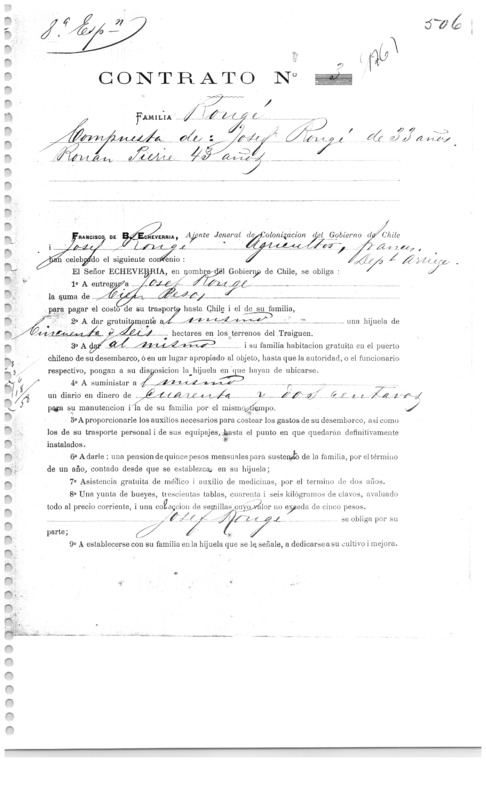 8ª Espⁿ
506
(176)
CONTRATO Nº 3
FAMILIA Rougé
Compuesta de: Josef Rougé de 33 años.
Ronan Pierre 43 años
FRANCISCO DE B. ECHEVERRIA, Ajente Jeneral de Colonizacion del Gobierno de Chile
i Josef Rougé Agricultor, frances,
han celebrado el siguiente convenio : Dept Ariege.
El Señor ECHEVERRIA, en nombre del Gobierno de Chile, se obliga :
1º A entregar a Josef Rouge
la suma de Cien Pesos
para pagar el costo de su trasporte hasta Chile i el de su familia,
2º A dar gratuitamente al mismo una hijuela de
Cincuenta y seis hectares en los terrenos del Traiguen.
3º A dar al mismo i su familia habitacion gratuita en el puerto
chileno de su desembarco, ó en un lugar apropiado al objeto, hasta que la autoridad, o el funcionario
respectivo, pongan a su disposicion la hijuela en que hayan de ubicarse.
4º A suministar al mismo
un diario en dinero de cuarenta y dos centavos
para su manutencion i la de su familia por el mismo tiempo.
5º A proporcionarle los auxilios necesarios para costear los gastos de su desembarco, así como
los de su trasporte personal i de sus equipajes, hasta el punto en que quedarán definitivamente
instalados.
6º A darle : una pension de quince pesos mensuales para sustento de la familia, por el término
de un año, contado desde que se establezca en su hijuela;
7º Asistencia gratuita de médico i auxilio de medicinas, por el termino de dos años.
8º Una yunta de bueyes, trescientas tablas, cuarenta i seis kilógramos de clavos, avaluado
todo al precio corriente, i una coleccion de semillas cuyo valor no exceda de cinco pesos.
Josef Rougé se obliga por su
parte;
9º A establecerse con su familia en la hijuela que se le señale, a dedicarse a su cultivo i mejora.